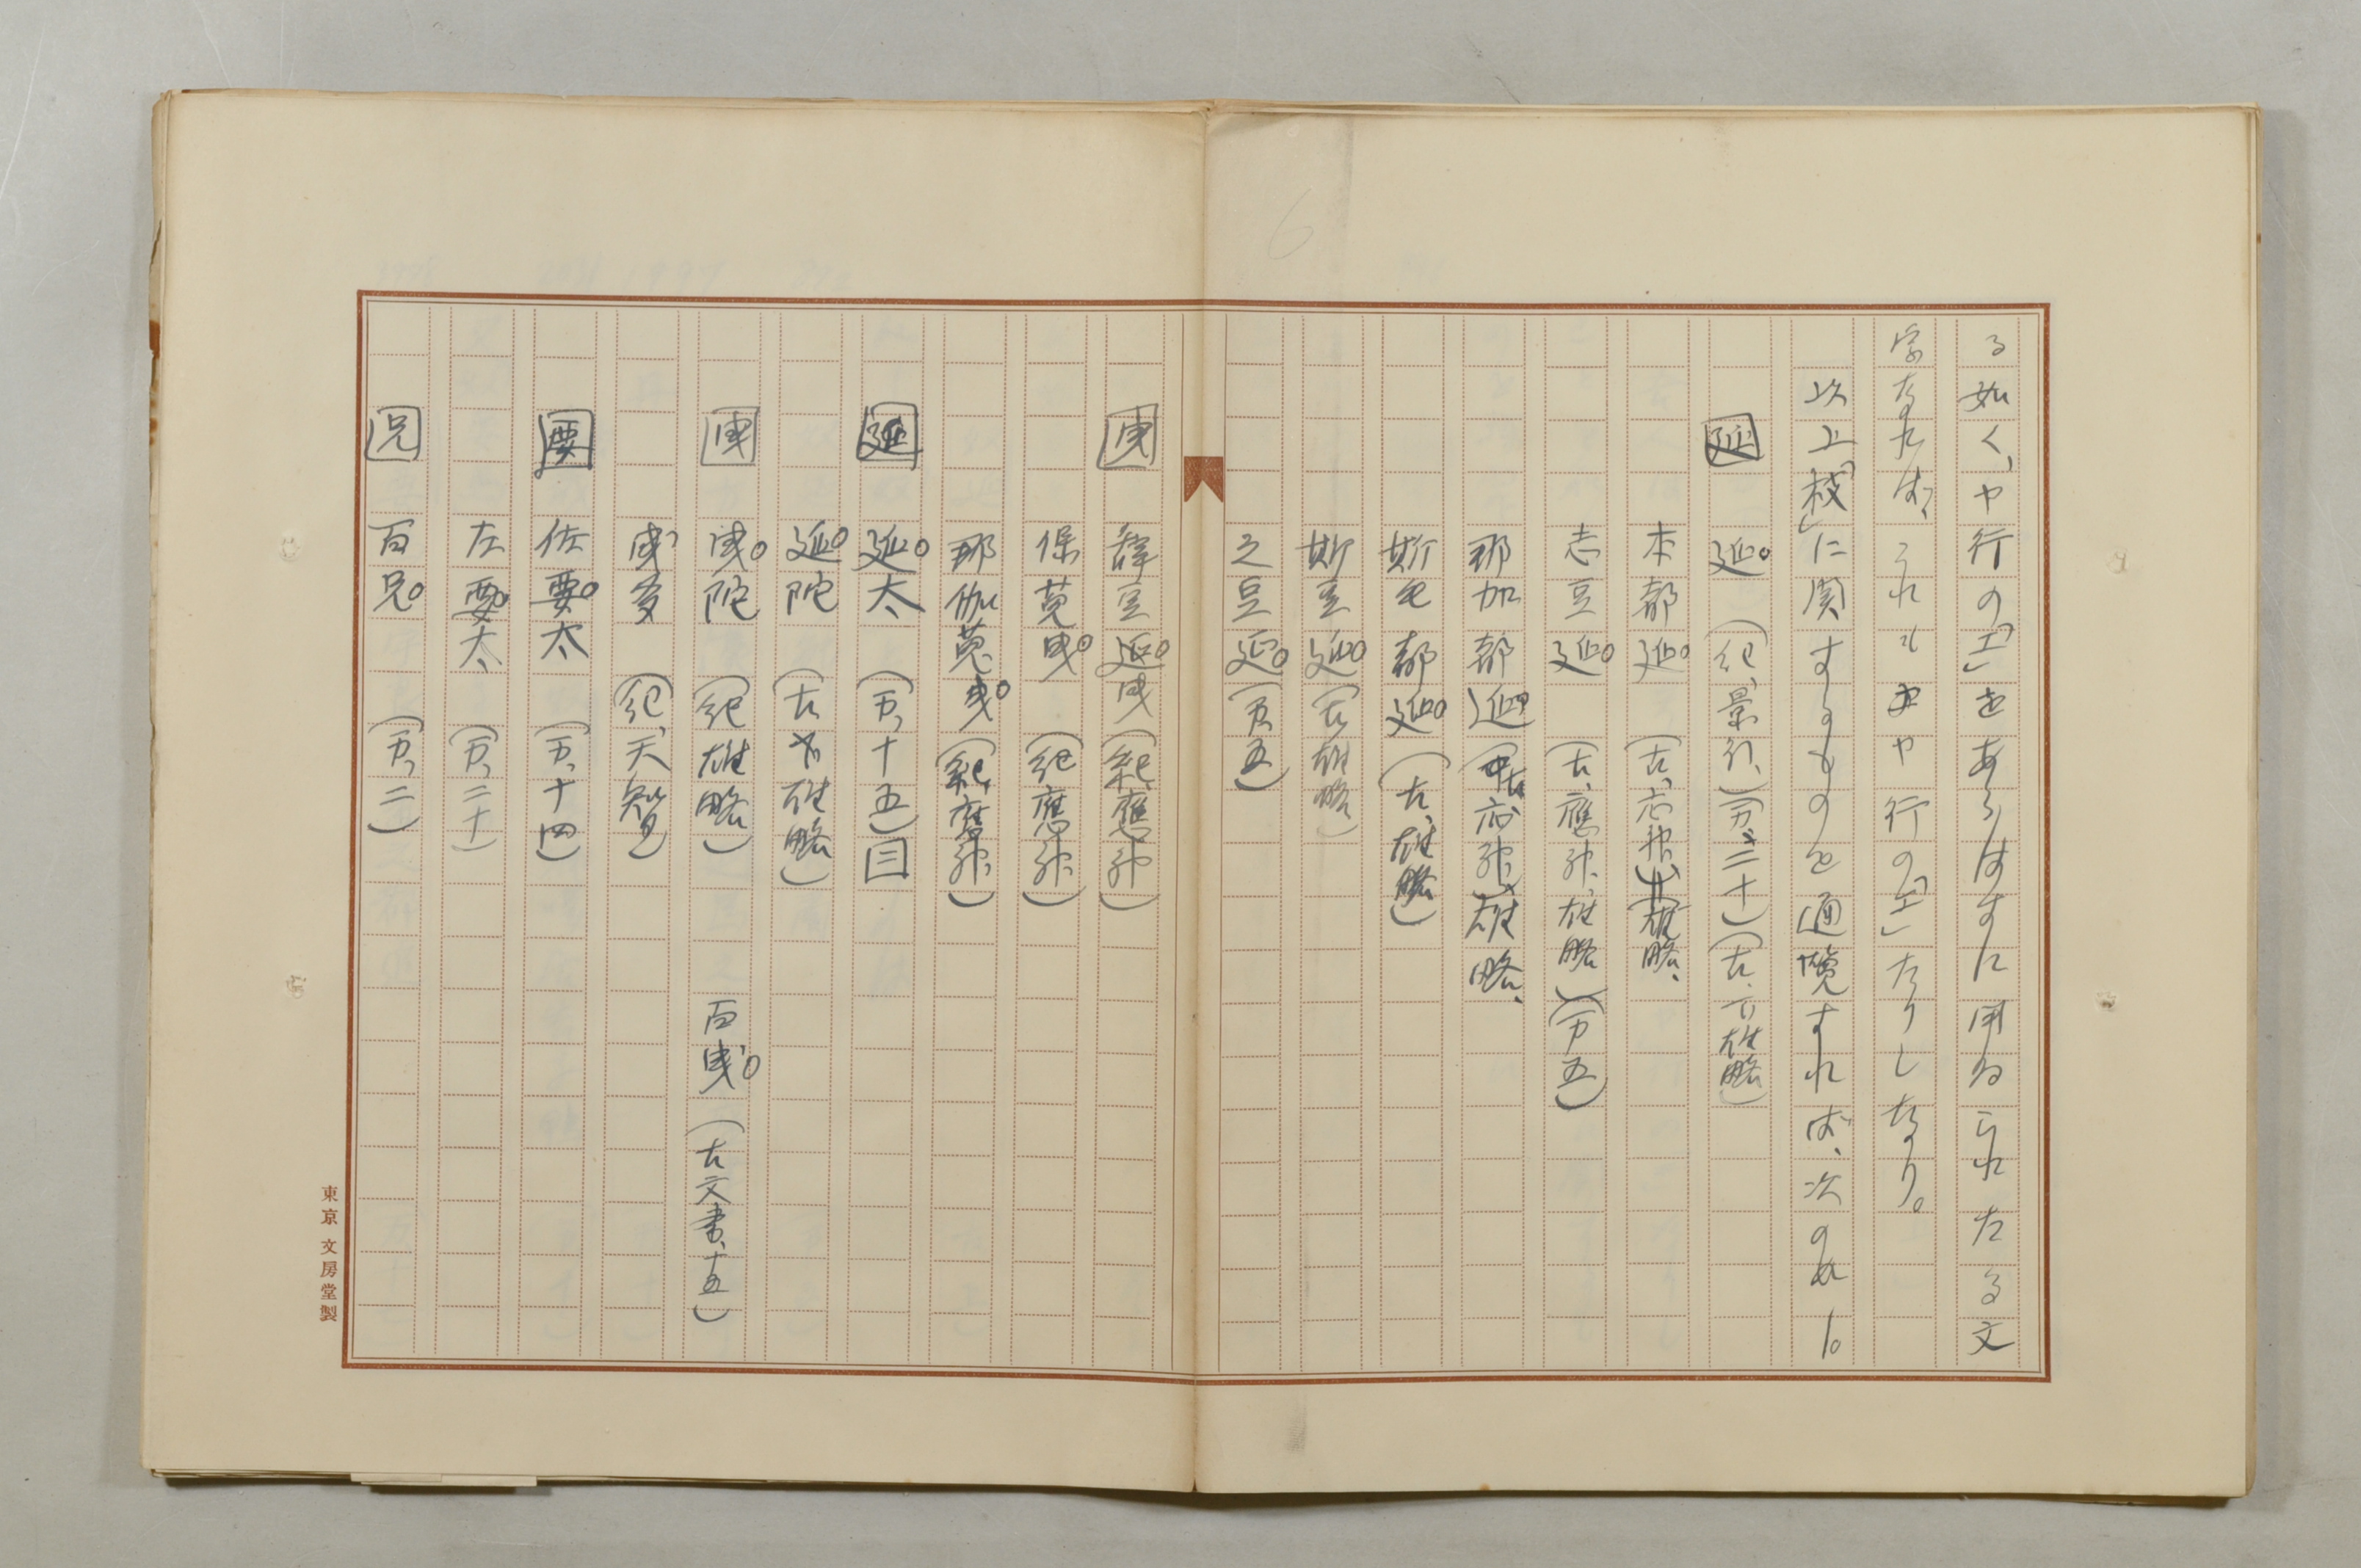 る如く、ヤ行の「エ」をあらはすに用ゐられたる文
字なれば、これもヤ行の「エ」なりしなり。
以上「枝」に関するものを通覧すれば、次の如し。
延 延 (紀、景行、)(万、二十)(古、雄略)
本都延 (古、応神、)(雄略、
志豆延 (古、應神、雄略)(万五)
那加都延 (古、応神、雄略、
斯毛都延 (古、雄略)
斯豆延 (古、雄略)
之豆延 (万、五)
曳 辞豆延曳 (紀、應神)
保莬曳 (紀應神)
那伽莬曳 (紀、應神、)
延 延太 (万、十五)三
延陀 (古、下、雄略)
曳 曳陀 (紀雄略) 百曳 (古文書、十五)
曳多 (紀、天智)
要 佐要太 (万、十四)
左要太 (万、二十)
兄 百兄 (万、二)
6
東京 文房堂製